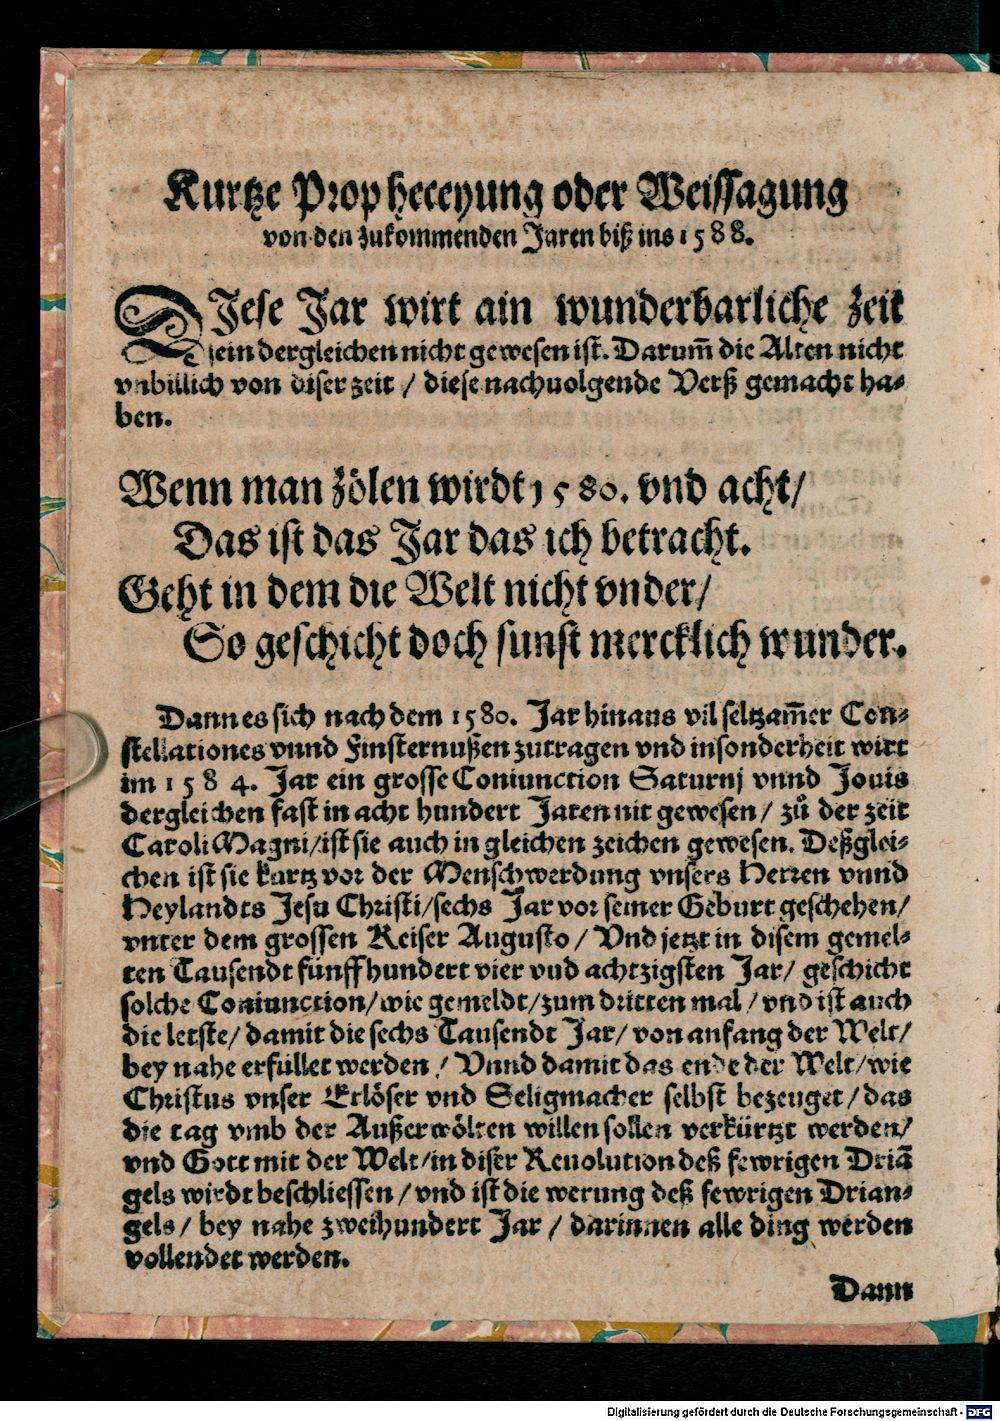 Kurtze Propheceyung oder Weissagung
von den zukommenden Jaren biß ins 1588.
DJese Jar wirt ain wunderbarliche zeit
sein dergleichen nicht gewesen ist. Darum̃ die Alten nicht
vnbillich von diser zeit / diese nachuolgende Verß gemacht ha-
ben.
Wenn man zölen wirdt 1580. vnd acht/
Das ist das Jar das ich betracht.
Geht in dem die Welt nicht vnder/
So geschicht doch sunst mercklich wunder.
Dann es sich nach dem 1580. Jar hinaus vil seltzam̃er Con-
stellationes vnnd Finsternußen zutragen vnd insonderheit wirt
im 1584. Jar ein grosse Coniunction Saturnj vnnd Jouis
dergleichen fast in acht hundert Jaren nit gewesen / zů der zeit
Caroli Magni/ist sie auch in gleichen zeichen gewesen. Deßglei-
chen ist sie kurtz vor der Menschwerdung vnsers Herren vnnd
Heylandts Jesu Christi/sechs Jar vor seiner Geburt geschehen/
vnter dem grossen Keiser Augusto / Vnd jetzt in disem gemel-
ten Tausendt fünffhundert vier vnd achtzigsten Jar/ geschicht
solche Coniunction/wie gemeldt/zum dritten mal / vnd ist auch
die letste/ damit die sechs Tausendt Jar/ von anfang der Welt/
bey nahe erfüllet werden / Vnnd damit das ende der Welt/wie
Christus vnser Erlöser vnd Seligmacher selbst bezeuget / das
die tag vmb der Außerwölten willen sollen verkürtzt werden/
vnd Gott mit der Welt/in diser Reuolution deß fewrigen Driã
gels wirdt beschliessen / vnd ist die werung deß fewrigen Drian-
gels/ bey nahe zweihundert Jar / darinnen alle ding werden
vollendet werden.
Dann
Digitalisierung gefördert durch die Deutsche Forschungsgemeinschaft - DFG